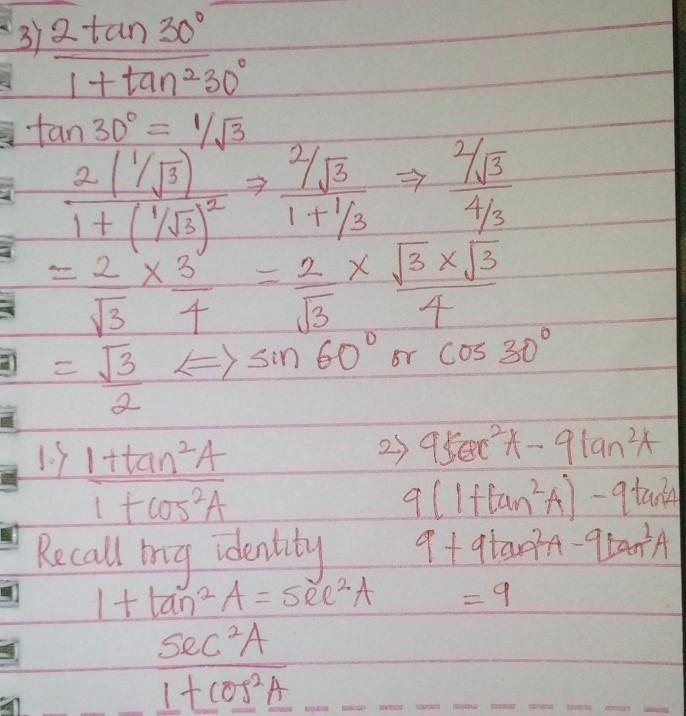 3) 2 tan 30° / 1 + tan² 30°
tan 30° = 1/√3
2 (1/√3) / 1 + (1/√3)² ⇒ 2/√3 / 1 + 1/3 ⇒ 2/√3 / 4/3
= 2/√3 × 3/4 = 2/√3 × √3 × √3 / 4
= √3/2 <=> sin 60° or cos 30°
1.) 1 + tan² A / 1 + cos² A
Recall trig identity
1 + tan² A = sec² A
sec² A / 1 + cos² A
2) 9 sec² A - 9 tan² A
9 (1 + tan² A) - 9 tan² A
9 + 9 tan² A - 9 tan² A
= 9